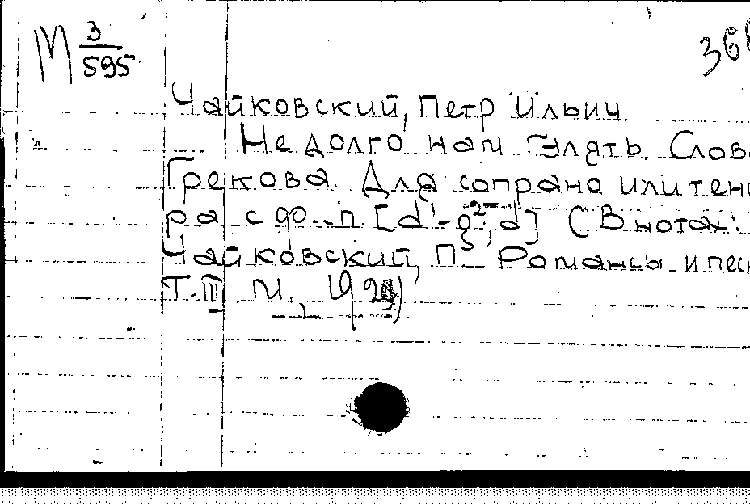 М 3/595 36
Чайковский, Петр Ильич
Недолго нам гулять. Слов
Грекова. Для сопрано или тено
ра с ф.-п. [d¹-g², d] (В нотах:
Чайковский, П. Романсы и пес
Т. III М.,